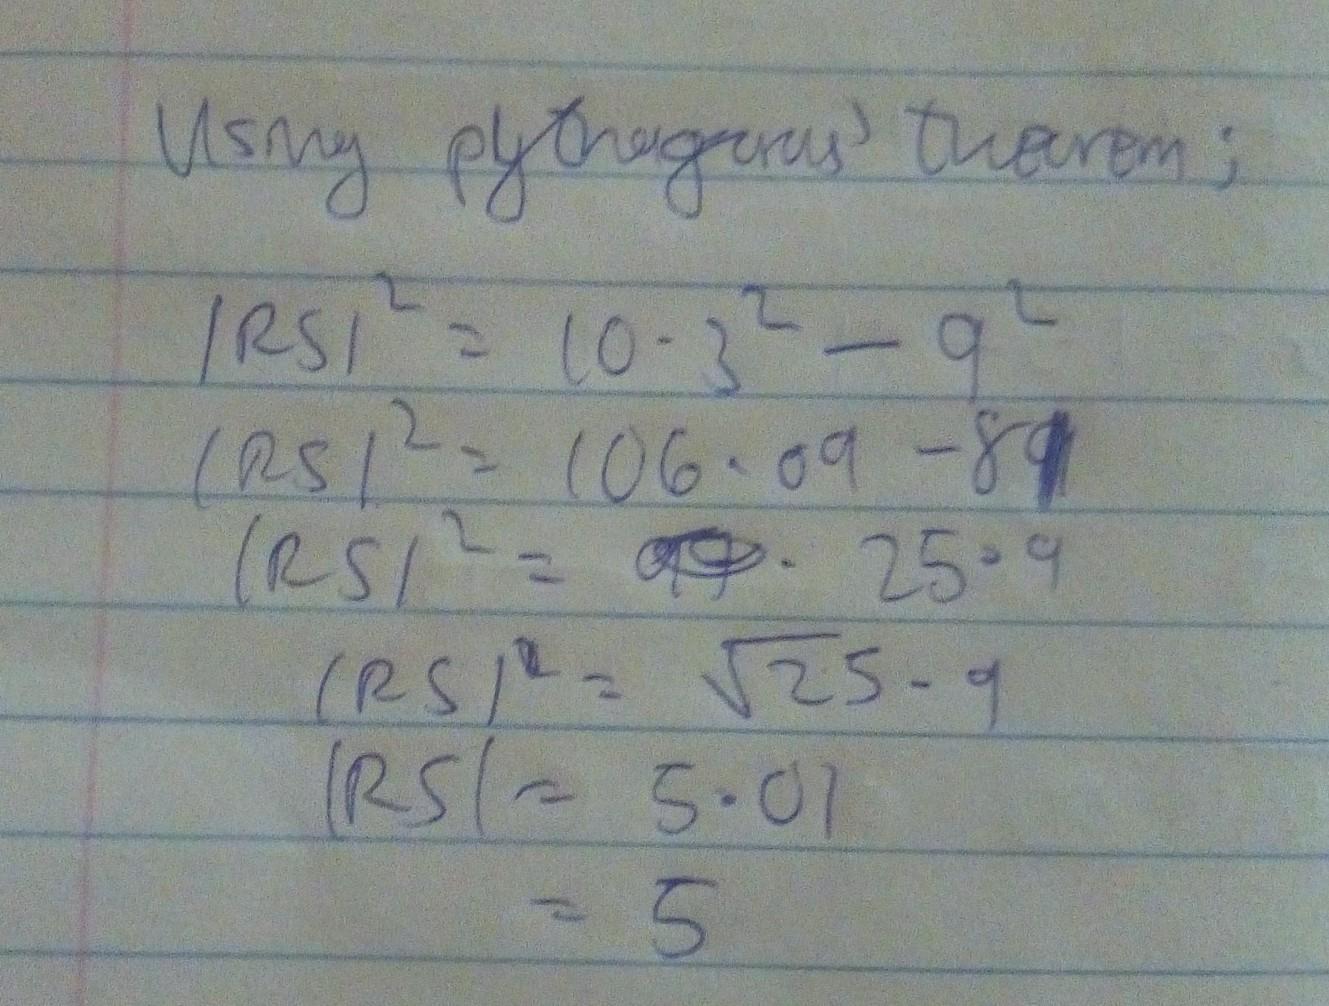 Using pythagoras' theorem;
|RS|² = 10.3² - 9²
|RS|² = 106.09 - 81
|RS|² = 25.9
|RS| = √25.9
|RS| = 5.01
= 5